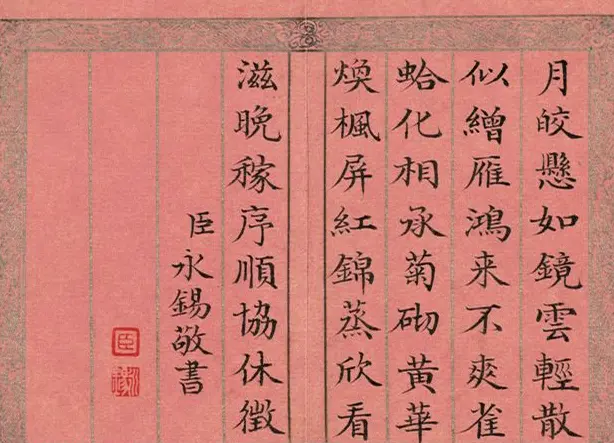 月皎懸如鏡雲輕散
似繒雁鴻来不爽雀
蛤化相承菊砌黄華
煥楓屏紅錦蒸欣看
滋晩稼序順協休徵
臣永錫敬書
臣